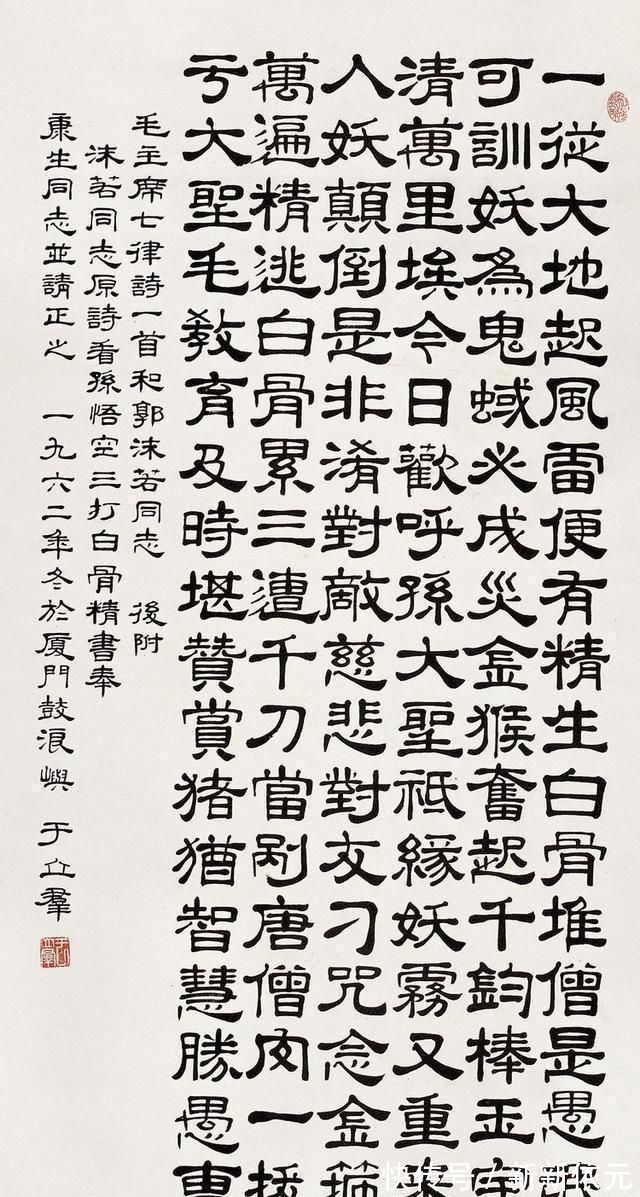 一從大地起風雷便有精生白骨堆僧是愚
可訓妖為鬼蜮必成災金猴奮起千鈞棒玉宇
清萬里埃今日歡呼孫大聖祗緣妖霧又重來
人妖顛倒是非淆對敵慈悲對友刁咒念金箍
萬遍精逃白骨累三遭千刀當剮唐僧肉一拔
亏大聖毛教育及時堪贊賞猪猶智慧勝愚曹
毛主席七律詩一首和郭沫若同志 後附
沫若同志原詩看孫悟空三打白骨精書奉
康生同志並請正之 一九六二年冬於厦門鼓浪嶼 于立羣
于立羣
快传号 / 新新体元